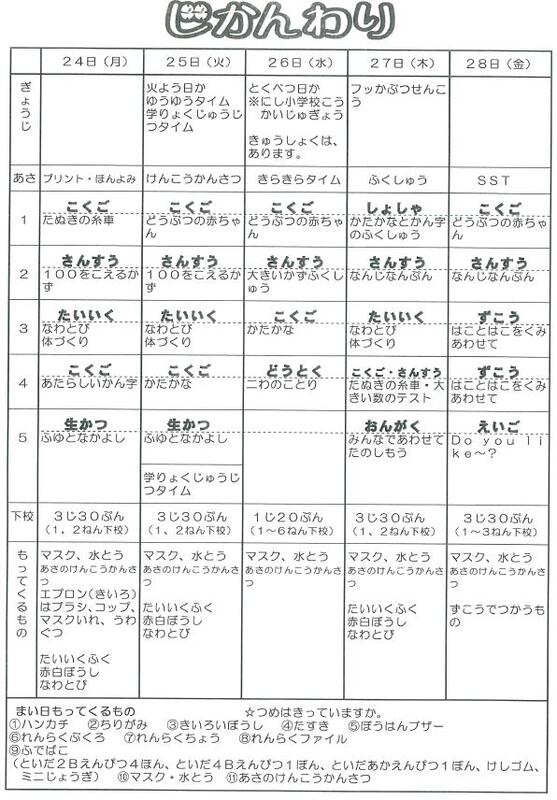 じかんわり
24日（月） 25日（火） 26日（水） 27日（木） 28日（金）
ぎょうじ
火よう日か
ゆうゆうタイム
学りょくじゅうじ
つタイム
とくべつ日か
※にし小学校こう
かいじゅぎょう
きゅうしょくは、
あります。
フッかぶつせんこ
う
あさ プリント・ほんよみ けんこうかんさつ きらきらタイム ふくしゅう SST
1
こくご
たぬきの糸車
こくご
どうぶつの赤ちゃ
ん
こくご
どうぶつの赤ちゃ
ん
しょしゃ
かたかなとかん字
のふくしゅう
こくご
どうぶつの赤ちゃ
ん
2
さんすう
100をこえるか
ず
さんすう
100をこえるか
ず
さんすう
大きいかずふくし
ゅう
さんすう
なんじなんぷん
さんすう
なんじなんぷん
3
たいいく
なわとび
体づくり
たいいく
なわとび
体づくり
こくご
かたかな
たいいく
なわとび
体づくり
ずこう
はことはこをくみ
あわせて
4
こくご
あたらしいかん字
こくご
かたかな
どうとく
二わのことり
こくご・さんすう
たぬきの糸車・大
きい数のテスト
ずこう
はことはこをくみ
あわせて
5
生かつ
ふゆとなかよし
生かつ
ふゆとなかよし
学りょくじゅうじ
つタイム
おんがく
みんなであわせて
たのしもう
えいご
Do you li
ke～？
下校
3じ30ぷん
（1，2ねん下校）
3じ30ぷん
（1，2ねん下校）
1じ20ぷん
（1～6ねん下校）
3じ30ぷん
（1，2ねん下校）
3じ30ぷん
（1～3ねん下校）
もってくるもの
マスク、水とう
あさのけんこうかんさ
つ
エプロン（きいろ）
はブラシ、コップ、
マスクいれ、うわ
ぐつ
たいいくふく
赤白ぼうし
なわとび
マスク、水とう
あさのけんこうかんさ
つ
たいいくふく
赤白ぼうし
なわとび
マスク、水とう
あさのけんこうかんさ
つ
マスク、水とう
あさのけんこうかんさ
つ
たいいくふく
赤白ぼうし
なわとび
マスク、水とう
あさのけんこうかんさ
つ
ずこうでつかうも
の
まい日もってくるもの ☆つめはきっていますか。
①ハンカチ ②ちりがみ ③きいろいぼうし ④たすき ⑤ぼうはんブザー
⑥れんらくぶくろ ⑦れんらくちょう ⑧れんらくファイル
⑨ふでばこ
（といだ2Bえんぴつ4ほん、といだ4Bえんぴつ1ぽん、といだあかえんぴつ1ぽん、けしゴム、
ミニじょうぎ） ⑩マスク・水とう ⑪あさのけんこうかんさつ